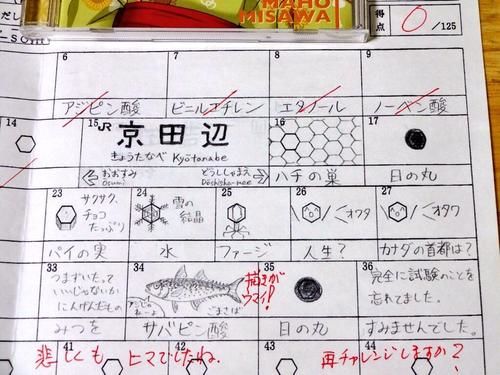 MAHO
MISAWA
得点
0/125
6
7
8
9
アジピン酸
ビニルエチレン
エタノール
ノーベン酸
14
15
JR
京田辺
きょうたなべ Kyōtanabe
おおすみ
Osumi
どうししゃまえ
Dōshisha-mae
16
ハチの巣
17
日の丸
23
サクサク、
チョコ
たっぷり
パイの実
24
雪の
結晶
水
25
ファージ
26
オワタ
人生?
27
オタワ
カナダの首都は?
33
つまずいたって
いいじゃないか
にんげんだもの
みつを
34
ごまさば
サバピン酸
描きが
ウマイ!
35
日の丸
36
完全に試験のことを
忘れてました。
すみませんでした。
悲しくも ヒマでしたね.
41
42
43
44
再チャレンジしますか?